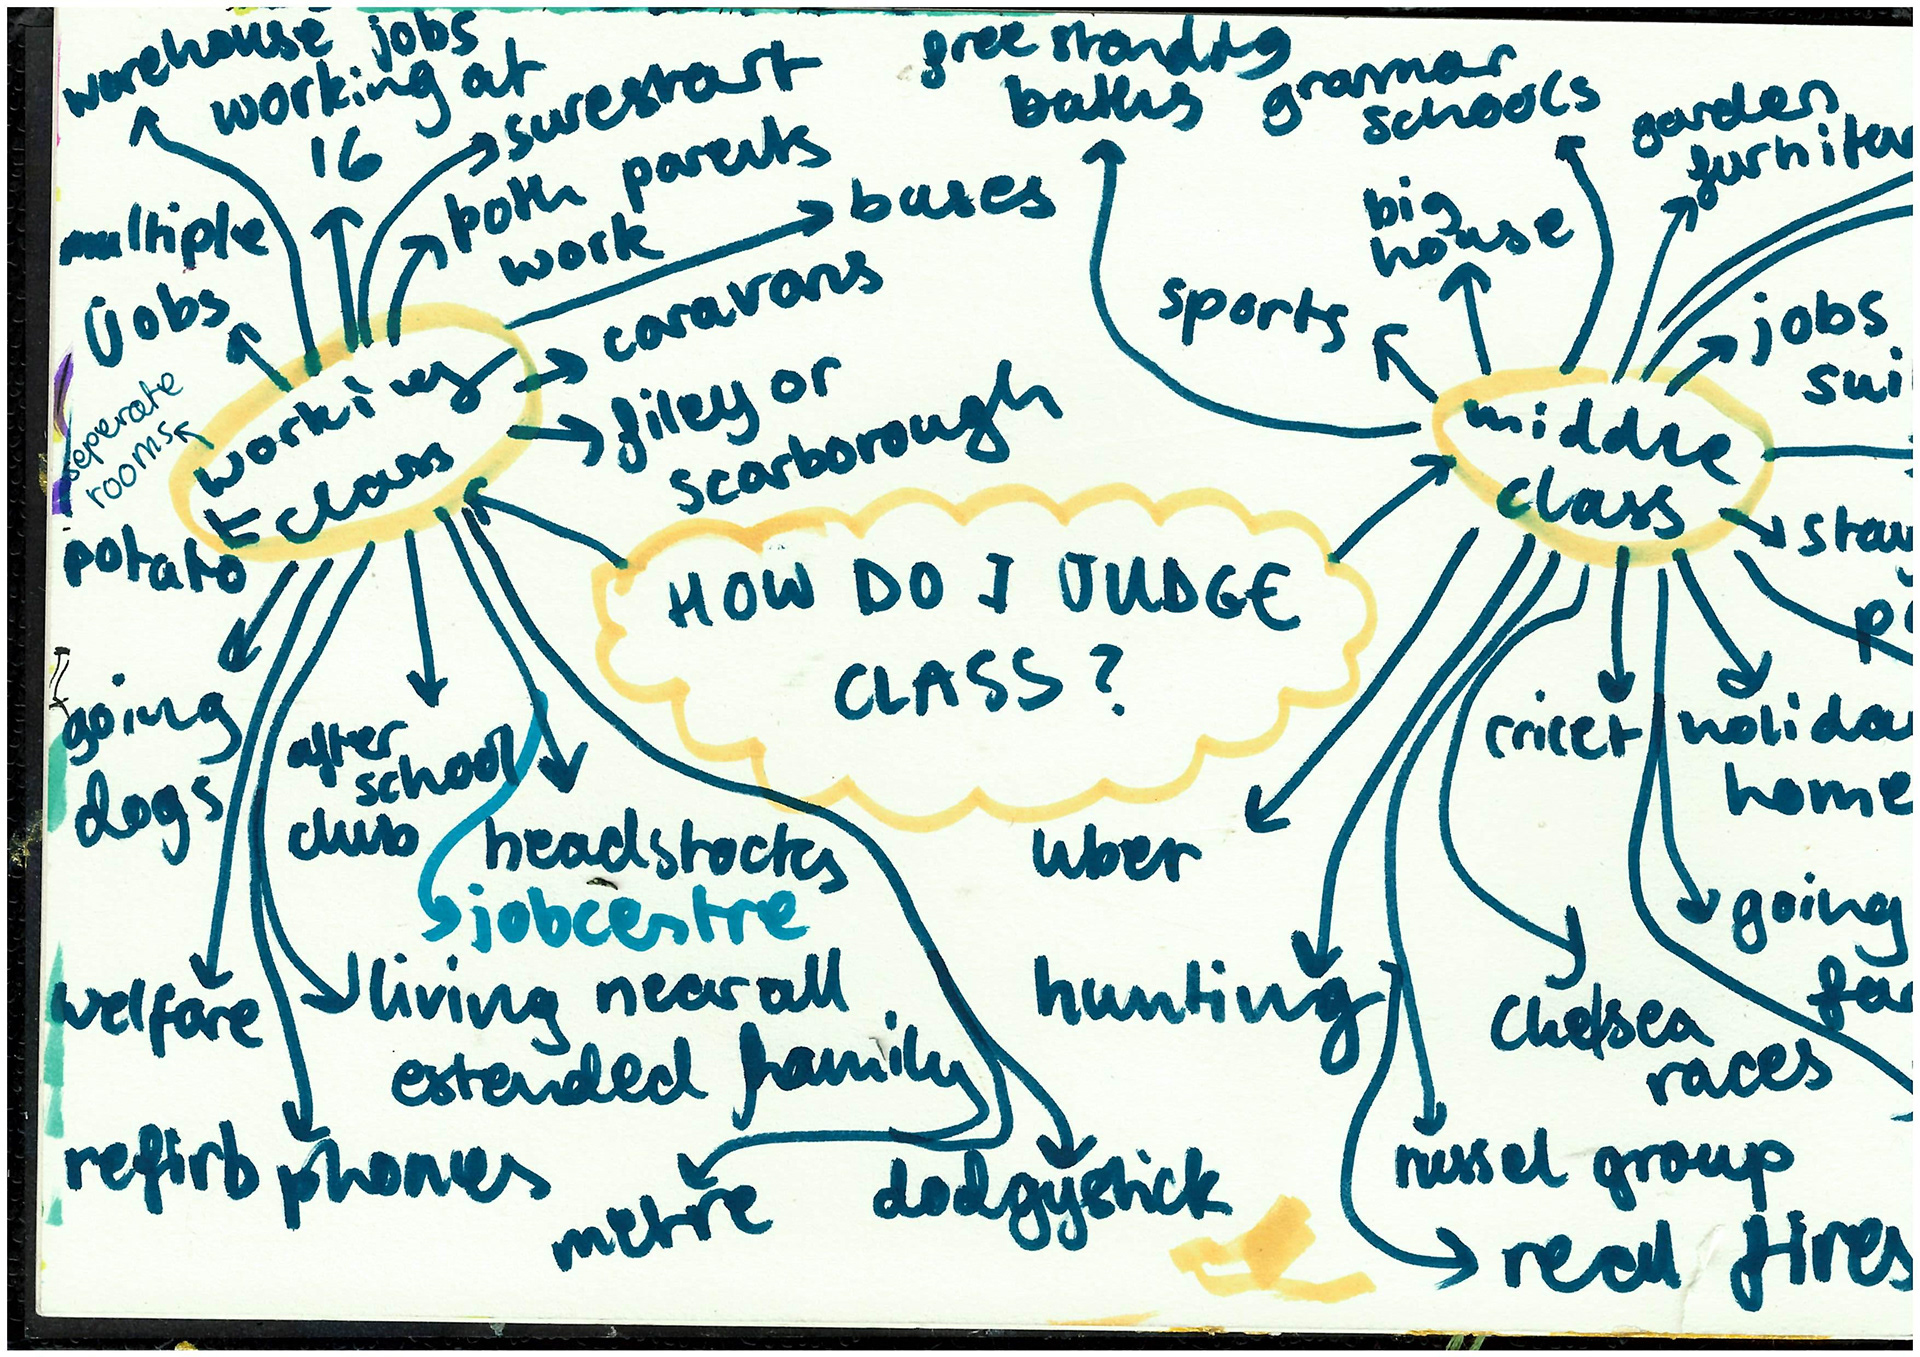 warehouse jobs
working at
16
surestart
both parents
work
buses
multiple
jobs
caravans
filey or
scarborough
seperate
rooms
working
class
potato
going
dogs
after
school
club
headstocks
jobcentre
welfare
living near all
extended family
refirb phones
metre
dodgystick
HOW DO I JUDGE
CLASS?
free standing
baths
grammar
schools
garden
big
house
sports
jobs
middle
class
cricet
uber
home
going
hunting
chelsea
races
russel group
real fires